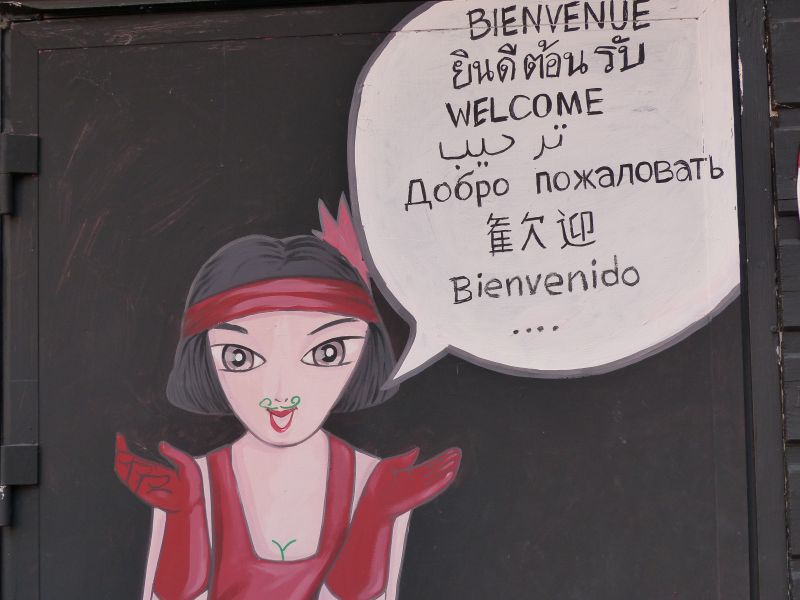 BIENVENUE
ยินดีต้อนรับ
WELCOME
ترحيب
Добро пожаловать
歡迎
Bienvenido
....